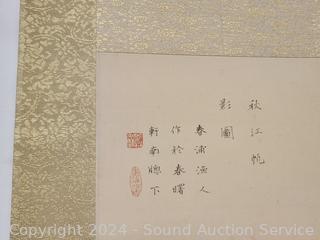 秋江帆
影圖
春浦漁人
作於春曙
軒南牕下
Copyright © 2024 - Sound Auction Service